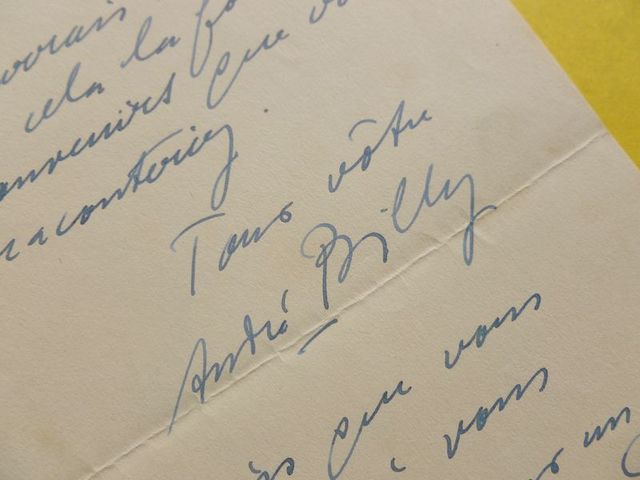 cela la
souvenirs que
raconteriez.
Tous vôtre
André Billy
que vous
vous
un